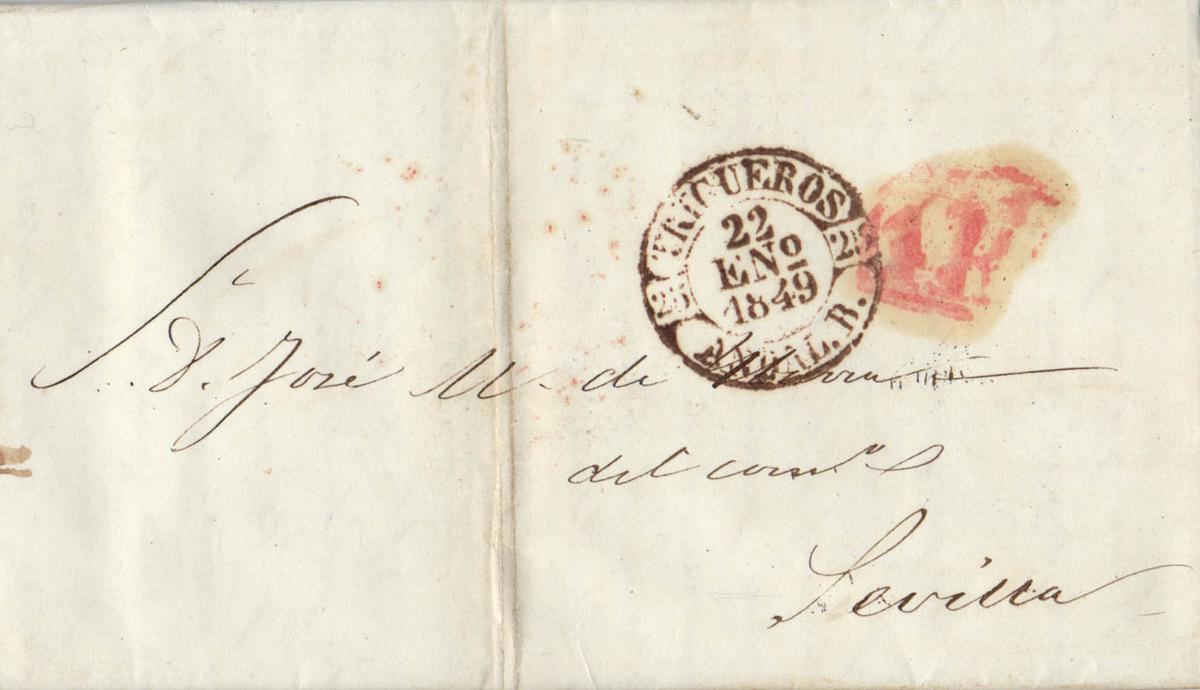 TRIGUEROS
22
ENº
1849
ANDAL. B.
S. D. José M. de
del comº
Sevilla